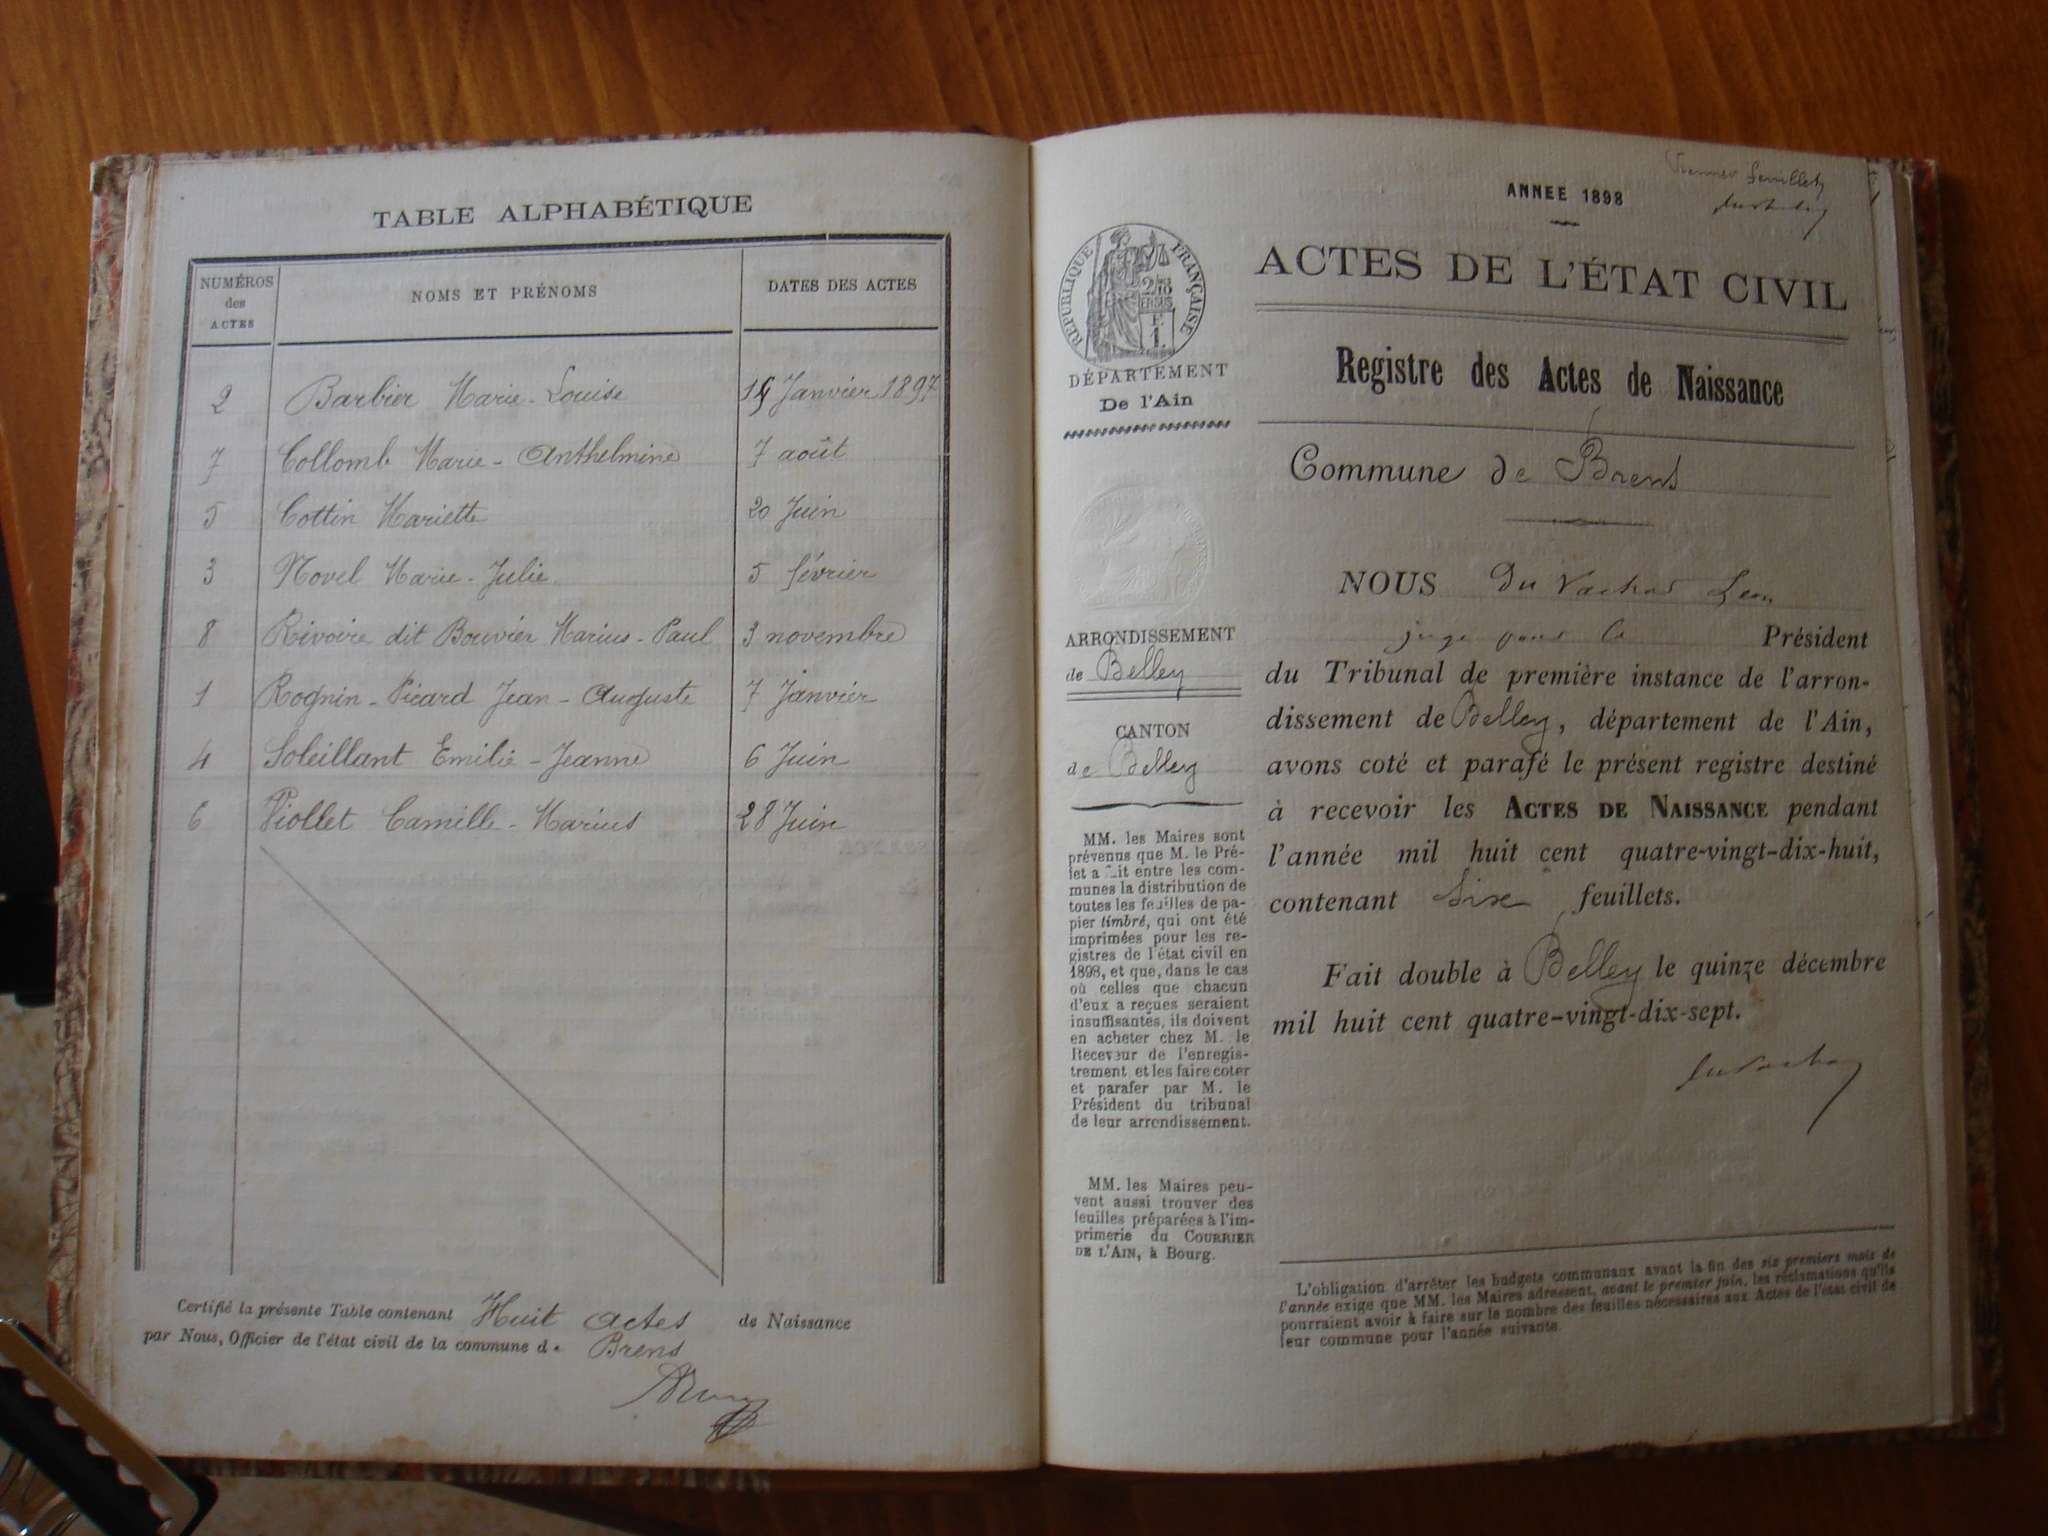 TABLE ALPHABÉTIQUE
NUMÉROS des ACTES
NOMS ET PRÉNOMS
DATES DES ACTES
2 Barbier Marie-Louise Janvier 1897
7 Collomb Marie-Anthelmine 7 août
5 Cottin Mariette 20 Juin
3 Novel Marie-Julie 5 février
8 Rivoire dit Bouvier Marius-Paul 3 novembre
1 Rognin-Picard Jean-Auguste 7 Janvier
4 Soleillant Emilie-Jeanne 6 Juin
6 Viollet Camille-Marius 28 Juin
Certifié la présente Table contenant Huit actes de Naissance
par Nous, Officier de l'état civil de la commune de Brens
Premier feuillet
ANNEE 1898
RÉPUBLIQUE FRANÇAISE
ACTES DE L'ÉTAT CIVIL
DÉPARTEMENT
De l'Ain
Registre des Actes de Naissance
Commune de Brens
ARRONDISSEMENT
de Belley
CANTON
de Belley
MM. les Maires sont
prévenus que M. le Pré-
fet a fait entre les com-
munes la distribution de
toutes les feuilles de pa-
pier timbré, qui ont été
imprimées pour les re-
gistres de l'état civil en
1898, et que, dans le cas
où celles que chacun
d'eux a reçues seraient
insuffisantes, ils doivent
en acheter chez M. le
Receveur de l'enregis-
trement et les faire coter
et parafer par M. le
Président du tribunal
de leur arrondissement.
MM. les Maires peu-
vent aussi trouver des
feuilles préparées à l'im-
primerie du COURRIER
DE L'AIN, à Bourg.
NOUS Du Vachat Léon
juge pour le Président
du Tribunal de première instance de l'arron-
dissement de Belley, département de l'Ain,
avons coté et parafé le présent registre destiné
à recevoir les ACTES DE NAISSANCE pendant
l'année mil huit cent quatre-vingt-dix-huit,
contenant Six feuillets.
Fait double à Belley le quinze décembre
mil huit cent quatre-vingt-dix-sept.
L'obligation d'arrêter les budgets communaux avant la fin des six premiers mois de
l'année exige que MM. les Maires adressent, avant le premier juin, les réclamations qu'ils
pourraient avoir à faire sur le nombre des feuilles nécessaires aux Actes de l'état civil de
leur commune pour l'année suivante.